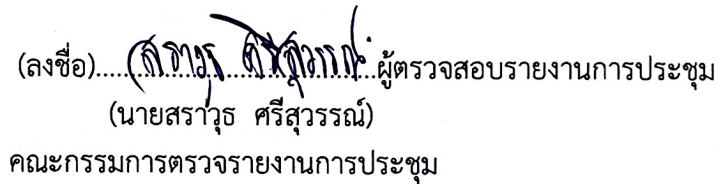 (ลงชื่อ)......สราวุธ ศรีสุวรรณ์......ผู้ตรวจสอบรายงานการประชุม
(นายสราวุธ ศรีสุวรรณ์)
คณะกรรมการตรวจรายงานการประชุม